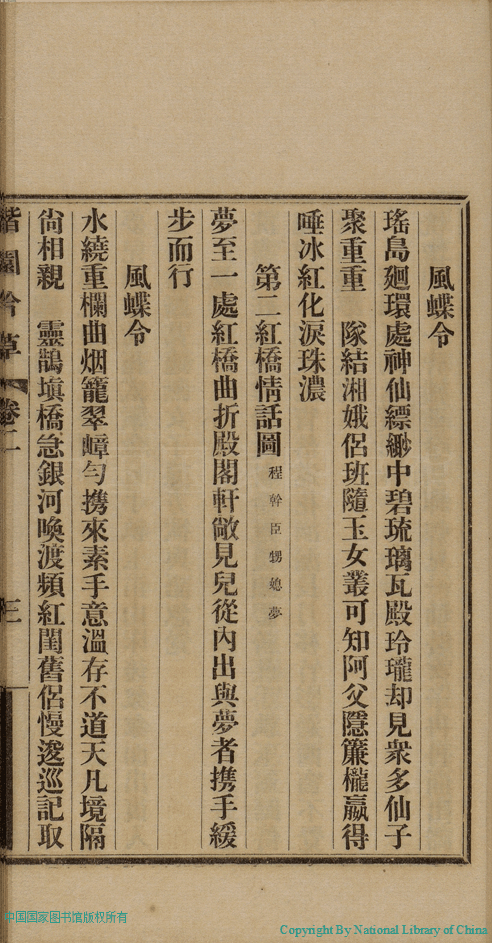 風蝶令
瑤島廻環處神仙縹緲中碧琉璃瓦殿玲瓏却見衆多仙子
聚重重　隊結湘娥侶班隨玉女叢可知阿父隱簾櫳嬴得
唾冰紅化淚珠濃
第二紅橋情話圖 程幹臣甥媳夢
夢至一處紅橋曲折殿閣軒敞見兒從內出與夢者携手緩
步而行
風蝶令
水繞重欄曲烟籠翠嶂勻携來素手意溫存不道天凡境隔
尙相親　靈鵲塡橋急銀河喚渡頻紅閨舊侶慢逡巡記取
卷二
三
中国国家图书馆版权所有
Copyright By National Library of China